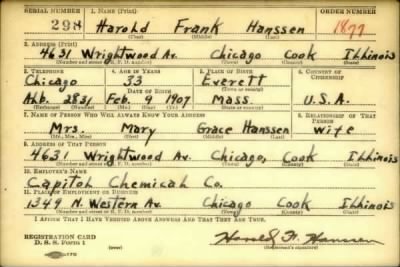 SERIAL NUMBER 1. NAME (Print) ORDER NUMBER
298 Harold Frank Hanssen 1877
(First) (Middle) (Last)
2. ADDRESS (Print)
4631 Wrightwood Av. Chicago Cook Illinois
(Number and street or R. F. D. number) (Town) (County) (State)
3. TELEPHONE 4. AGE IN YEARS 5. PLACE OF BIRTH 6. COUNTRY OF CITIZENSHIP
Chicago 33 Everett
DATE OF BIRTH (Town or county)
2831 Feb. 9 1907 Mass. U.S.A.
(Exchange) (Number) (Mo.) (Day) (Yr.) (State or country)
7. NAME OF PERSON WHO WILL ALWAYS KNOW YOUR ADDRESS 8. RELATIONSHIP OF THAT PERSON
Mrs. Mary Grace Hanssen Wife
(Mr., Mrs., Miss) (First) (Middle) (Last)
9. ADDRESS OF THAT PERSON
4631 Wrightwood Av. Chicago, Cook Illinois
(Number and street or R. F. D. number) (Town) (County) (State)
10. EMPLOYER'S NAME
Capitol Chemical Co.
11. PLACE OF EMPLOYMENT OR BUSINESS
1349 N. Western Av Chicago Cook Illinois
(Number and street or R. F. D. number) (Town) (County) (State)
I AFFIRM THAT I HAVE VERIFIED ABOVE ANSWERS AND THAT THEY ARE TRUE.
REGISTRATION CARD
D. S. S. Form 1 Harold F. Hanssen
(Registrant's signature)